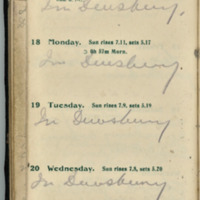 In Dewsbury.
18 Monday. Sun rises 7.11, sets 5.17
In Dewsbury.
19 Tuesday. Sun rises 7.9, sets 5.19
In Dewsbury.
20 Wednesday. Sun rises 7.8, sets 5.20
In Dewsbury